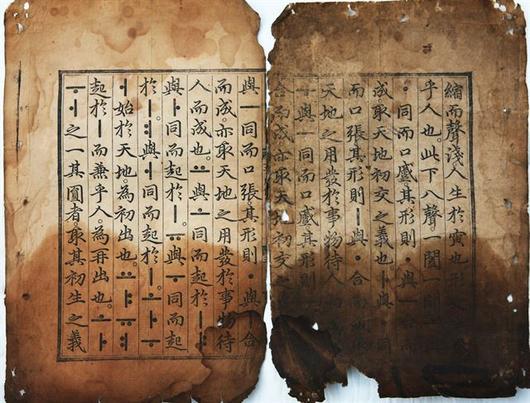 縮而聲淺。人生於寅也。形
乎人也。此下八聲。一闔一闢
ㆍ同而口蹙。其形則ㆍ與ㅡ合
成。取天地初交之義也。ㅏ與 同
而口張。其形則ㅣ與ㆍ合而
天地之用發於事物待人而
與ㅡ同而口蹙。其形則
合而成。亦取天地初交之
與ㅡ同而口張。其形則ㆍ與ㅣ合
而成。亦取天地之用發於事物待
人而成也。ㅛ與ㅗ同而起於ㅣ。
ㅑ與ㅏ同而起於ㅣ。ㅠ與ㅜ同而起
於ㅣ。ㅕ與ㅓ同而起於ㅣ。ㅗㅏㅜ
ㅓ始於天地。為初出也。ㅛㅑㅠㅕ
起於ㅣ而兼乎人。為再出也。ㅗㅏ
ㅜㅓ之一其圓者。取其初生之義